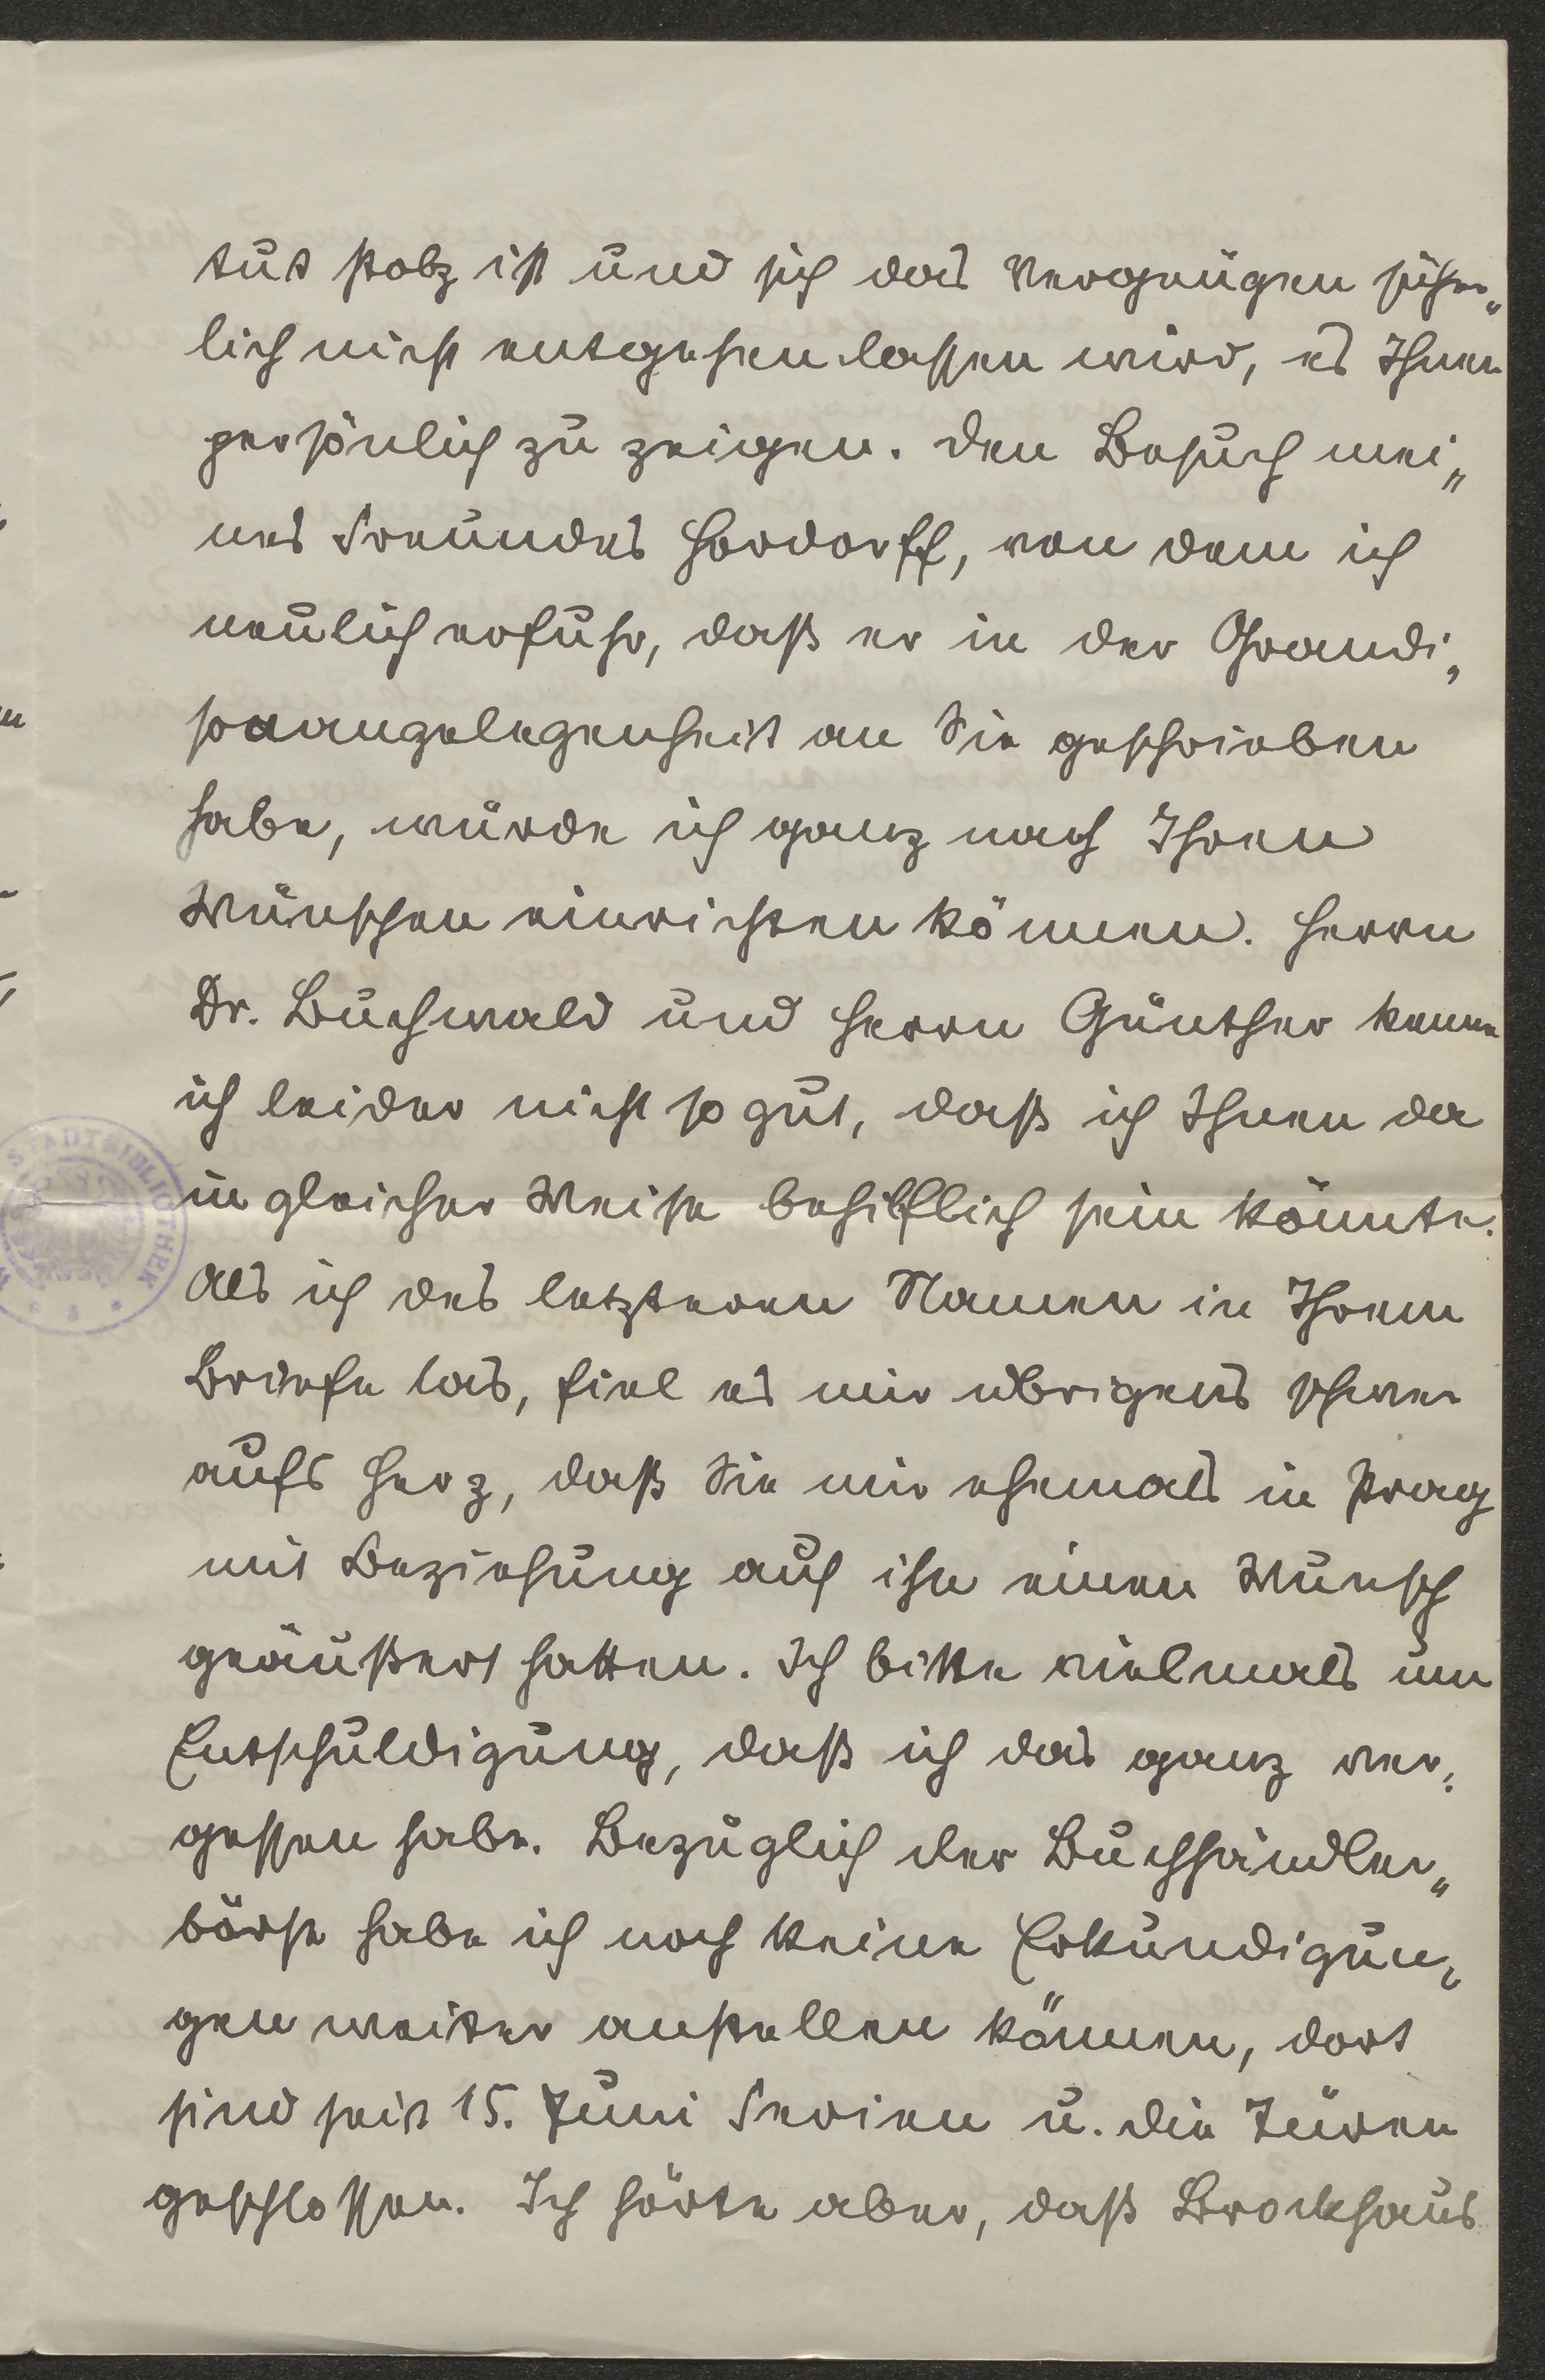 tut stolz ist und sich das Vergnügen sicher„
lich nicht entgehen lassen wird, es Ihnen
persönlich zu zeigen. Den Besuch mei„
nes Freundes Hordorff, von dem ich
neulich erfuhr, daß er in der Grandi„
soangelegenheit an Sie geschrieben
habe, würde ich ganz nach Ihren
Wünschen einrichten können. Herrn
Dr. Buchwald und Herrn Günther kenne
ich leider nicht so gut, daß ich Ihnen da
in gleicher Weise behilflich sein könnte.
Als ich des letzteren Namen in Ihrem
Briefe las, fiel es mir übrigens schwer
aufs Herz, daß Sie mir ehemals in Prag
mit Beziehung auf ihn einen Wunsch
geäußert hatten. Ich bitte vielmals um
Entschuldigung, daß ich das ganz ver„
gessen habe. Bezüglich der Buchhändler„
börse habe ich noch keine Erkundigun„
gen weiter anstellen können, dort
sind seit 15. Juni Ferien u. die Türen
geschlossen. Ich hörte aber, daß Brockhaus
STADTBIBLIOTHEK